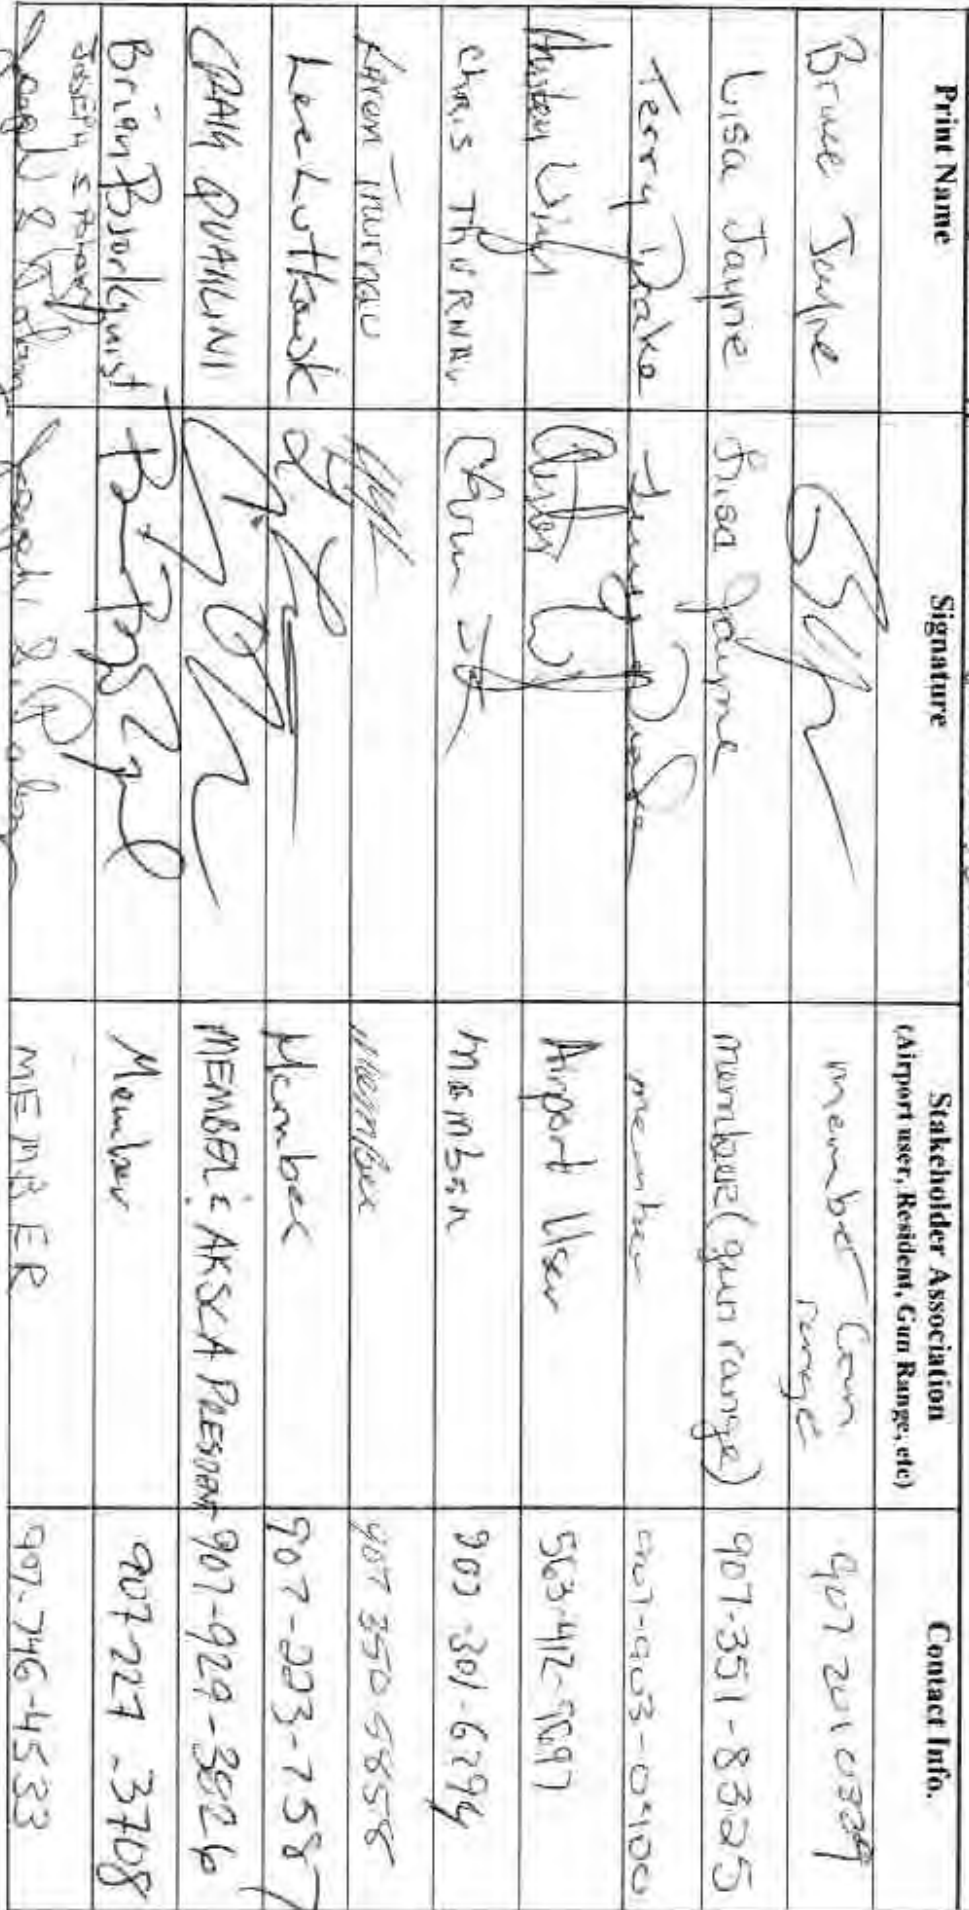 Print Name Signature Stakeholder Association Contact Info.
(Airport user, Resident, Gun Range, etc)
Bruce Jayne member Gun range 907 201 0329
Lisa Jayne Lisa Jayne member (gun range) 907-351-8325
Terry Drake Terry Drake member 907-903-0900
Airport User 563-412-
Chris THURNAU member 907-301-6294
Karen Thurnau member 907 350-5858
Lee Luthawk Member 907-223-7587
CRAIG QUAILINI MEMBER & AKSCA PRESIDENT 907-929-3826
Brian Bjorkquist Member 907-227-3708
JOSEPH MEMBER 907-746-4533